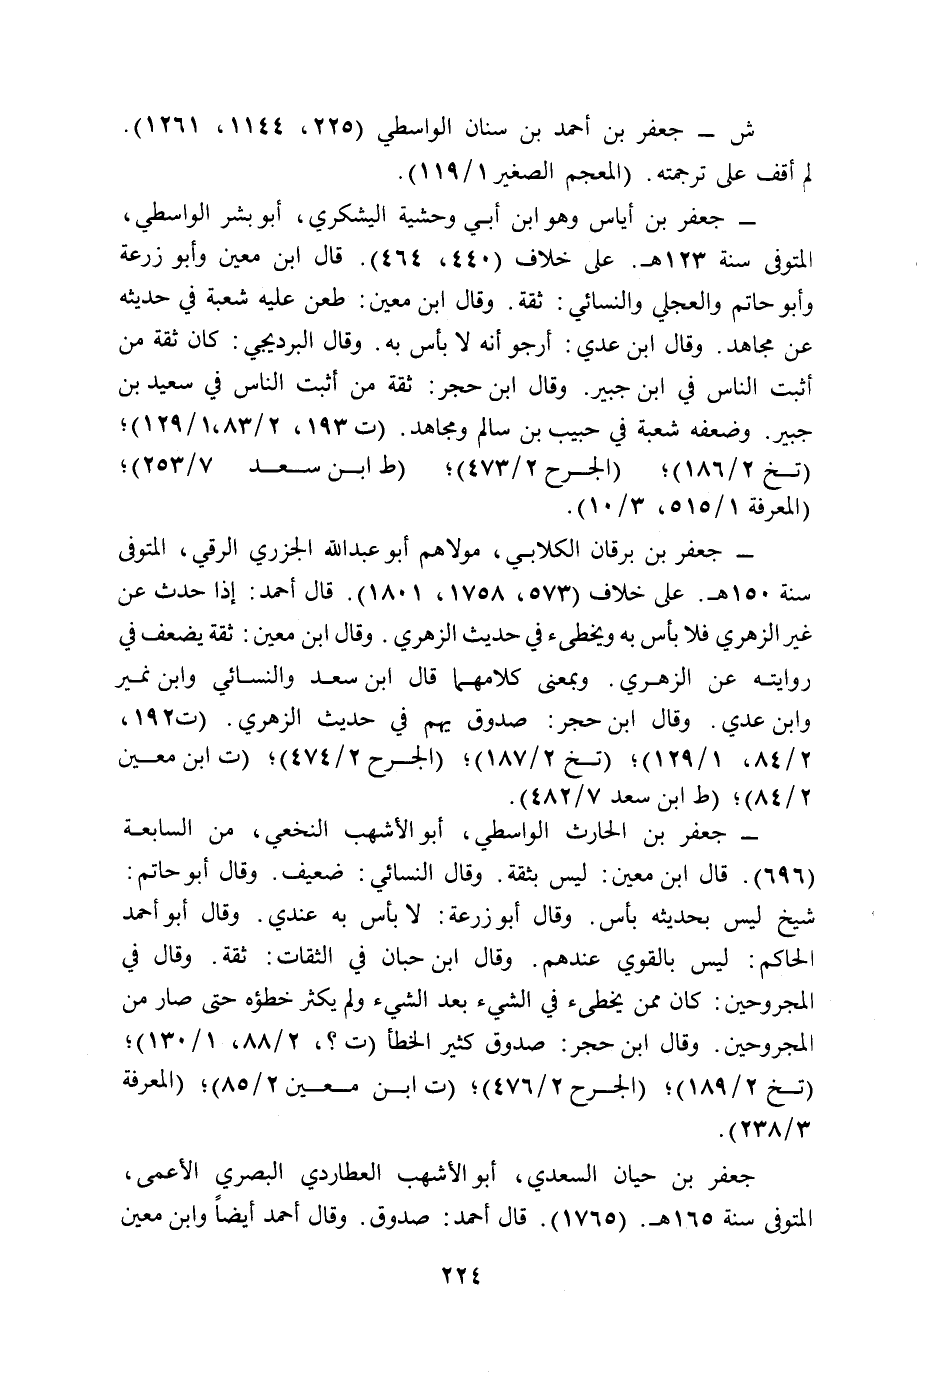 ش ــ جعفر بن أحمد بن سنان الواسطي (٢٢٥، ١١٤٤، ١٢٦١).
لم أقف على ترجمته. (المعجم الصغير ١١٩/١).
ــ جعفر بن أياس وهو ابن أبي وحشية اليشكري، أبو بشر الواسطي،
المتوفى سنة ١٢٣هـ. على خلاف (٤٤٠، ٤٦٤). قال ابن معين وأبو زرعة
وأبو حاتم والعجلي والنسائي: ثقة. وقال ابن معين: طعن عليه شعبة في حديثه
عن مجاهد. وقال ابن عدي: أرجو أنه لا بأس به. وقال البرديجي: كان ثقة من
أثبت الناس في ابن جبير. وقال ابن حجر: ثقة من أثبت الناس في سعيد بن
جبير. وضعفه شعبة في حبيب بن سالم ومجاهد. (ت ١٩٣، ٨٣/٢، ١٢٩/١)؛
(تخ ١٨٦/٢)؛ (الجرح ٤٧٣/٢)؛ (ط ابن سعد ٢٥٣/٧)؛
(المعرفة ٥١٥/١، ١٠/٣).
ــ جعفر بن برقان الكلابي، مولاهم أبو عبدالله الجزري الرقي، المتوفى
سنة ١٥٠هـ. على خلاف (٥٧٣، ١٧٥٨، ١٨٠١). قال أحمد: إذا حدث عن
غير الزهري فلا بأس به ويخطىء في حديث الزهري. وقال ابن معين: ثقة يضعف في
روايته عن الزهري. وبمعنى كلامهما قال ابن سعد والنسائي وابن نمير
وابن عدي. وقال ابن حجر: صدوق يهم في حديث الزهري. (ت١٩٢،
٨٤/٢، ١٢٩/١)؛ (تخ ١٨٧/٢)؛ (الجرح ٤٧٤/٢)؛ (ت ابن معين
٨٤/٢)؛ (ط ابن سعد ٤٨٢/٧).
ــ جعفر بن الحارث الواسطي، أبو الأشهب النخعي، من السابعة
(٦٩٦). قال ابن معين: ليس بثقة. وقال النسائي: ضعيف. وقال أبو حاتم:
شيخ ليس بحديثه بأس. وقال أبو زرعة: لا بأس به عندي. وقال أبو أحمد
الحاكم: ليس بالقوي عندهم. وقال ابن حبان في الثقات: ثقة. وقال في
المجروحين: كان ممن يخطىء في الشيء بعد الشيء ولم يكثر خطؤه حتى صار من
المجروحين. وقال ابن حجر: صدوق كثير الخطأ (ت ؟، ٨٨/٢، ١٣٠/١)؛
(تخ ١٨٩/٢)؛ (الجرح ٤٧٦/٢)؛ (ت ابن معين ٨٥/٢)؛ (المعرفة
٢٣٨/٣).
جعفر بن حيان السعدي، أبو الأشهب العطاردي البصري الأعمى،
المتوفى سنة ١٦٥هـ. (١٧٦٥). قال أحمد: صدوق. وقال أحمد أيضاً وابن معين
٢٢٤